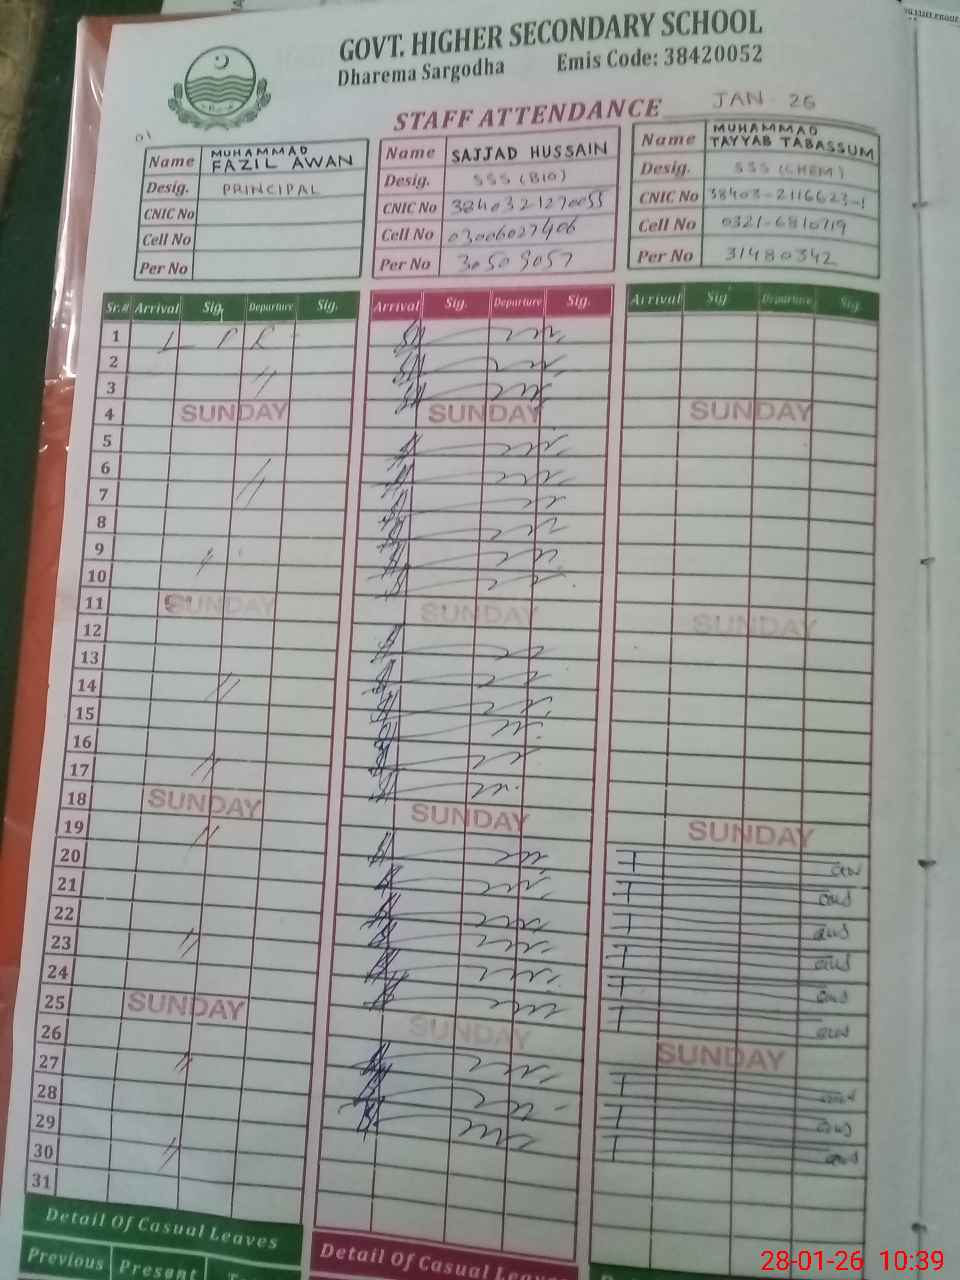 GOVT. HIGHER SECONDARY SCHOOL
Dharema Sargodha Emis Code: 38420052
STAFF ATTENDANCE JAN - 26
01
Name MUHAMMAD FAZIL AWAN
Desig. PRINCIPAL
CNIC No
Cell No
Per No
Name SAJJAD HUSSAIN
Desig. SSS (BIO)
CNIC No 3840321270055
Cell No 03006027406
Per No 30509057
Name MUHAMMAD TAYYAB TABASSUM
Desig. SSS (CHEM)
CNIC No 38403-2116623-1
Cell No 0321-6810719
Per No 31480342
Sr.# Arrival Sig. Departure Sig. Arrival Sig. Departure Sig. Arrival Sig Departure Sig.
1
2
3
4 SUNDAY SUNDAY SUNDAY
5
6
7
8
9
10
11 SUNDAY SUNDAY SUNDAY
12
13
14
15
16
17
18 SUNDAY SUNDAY SUNDAY
19
20
21
22
23
24
25 SUNDAY SUNDAY SUNDAY
26
27
28
29
30
31
Detail Of Casual Leaves Detail Of Casual Leaves
Previous Present
28-01-26 10:39